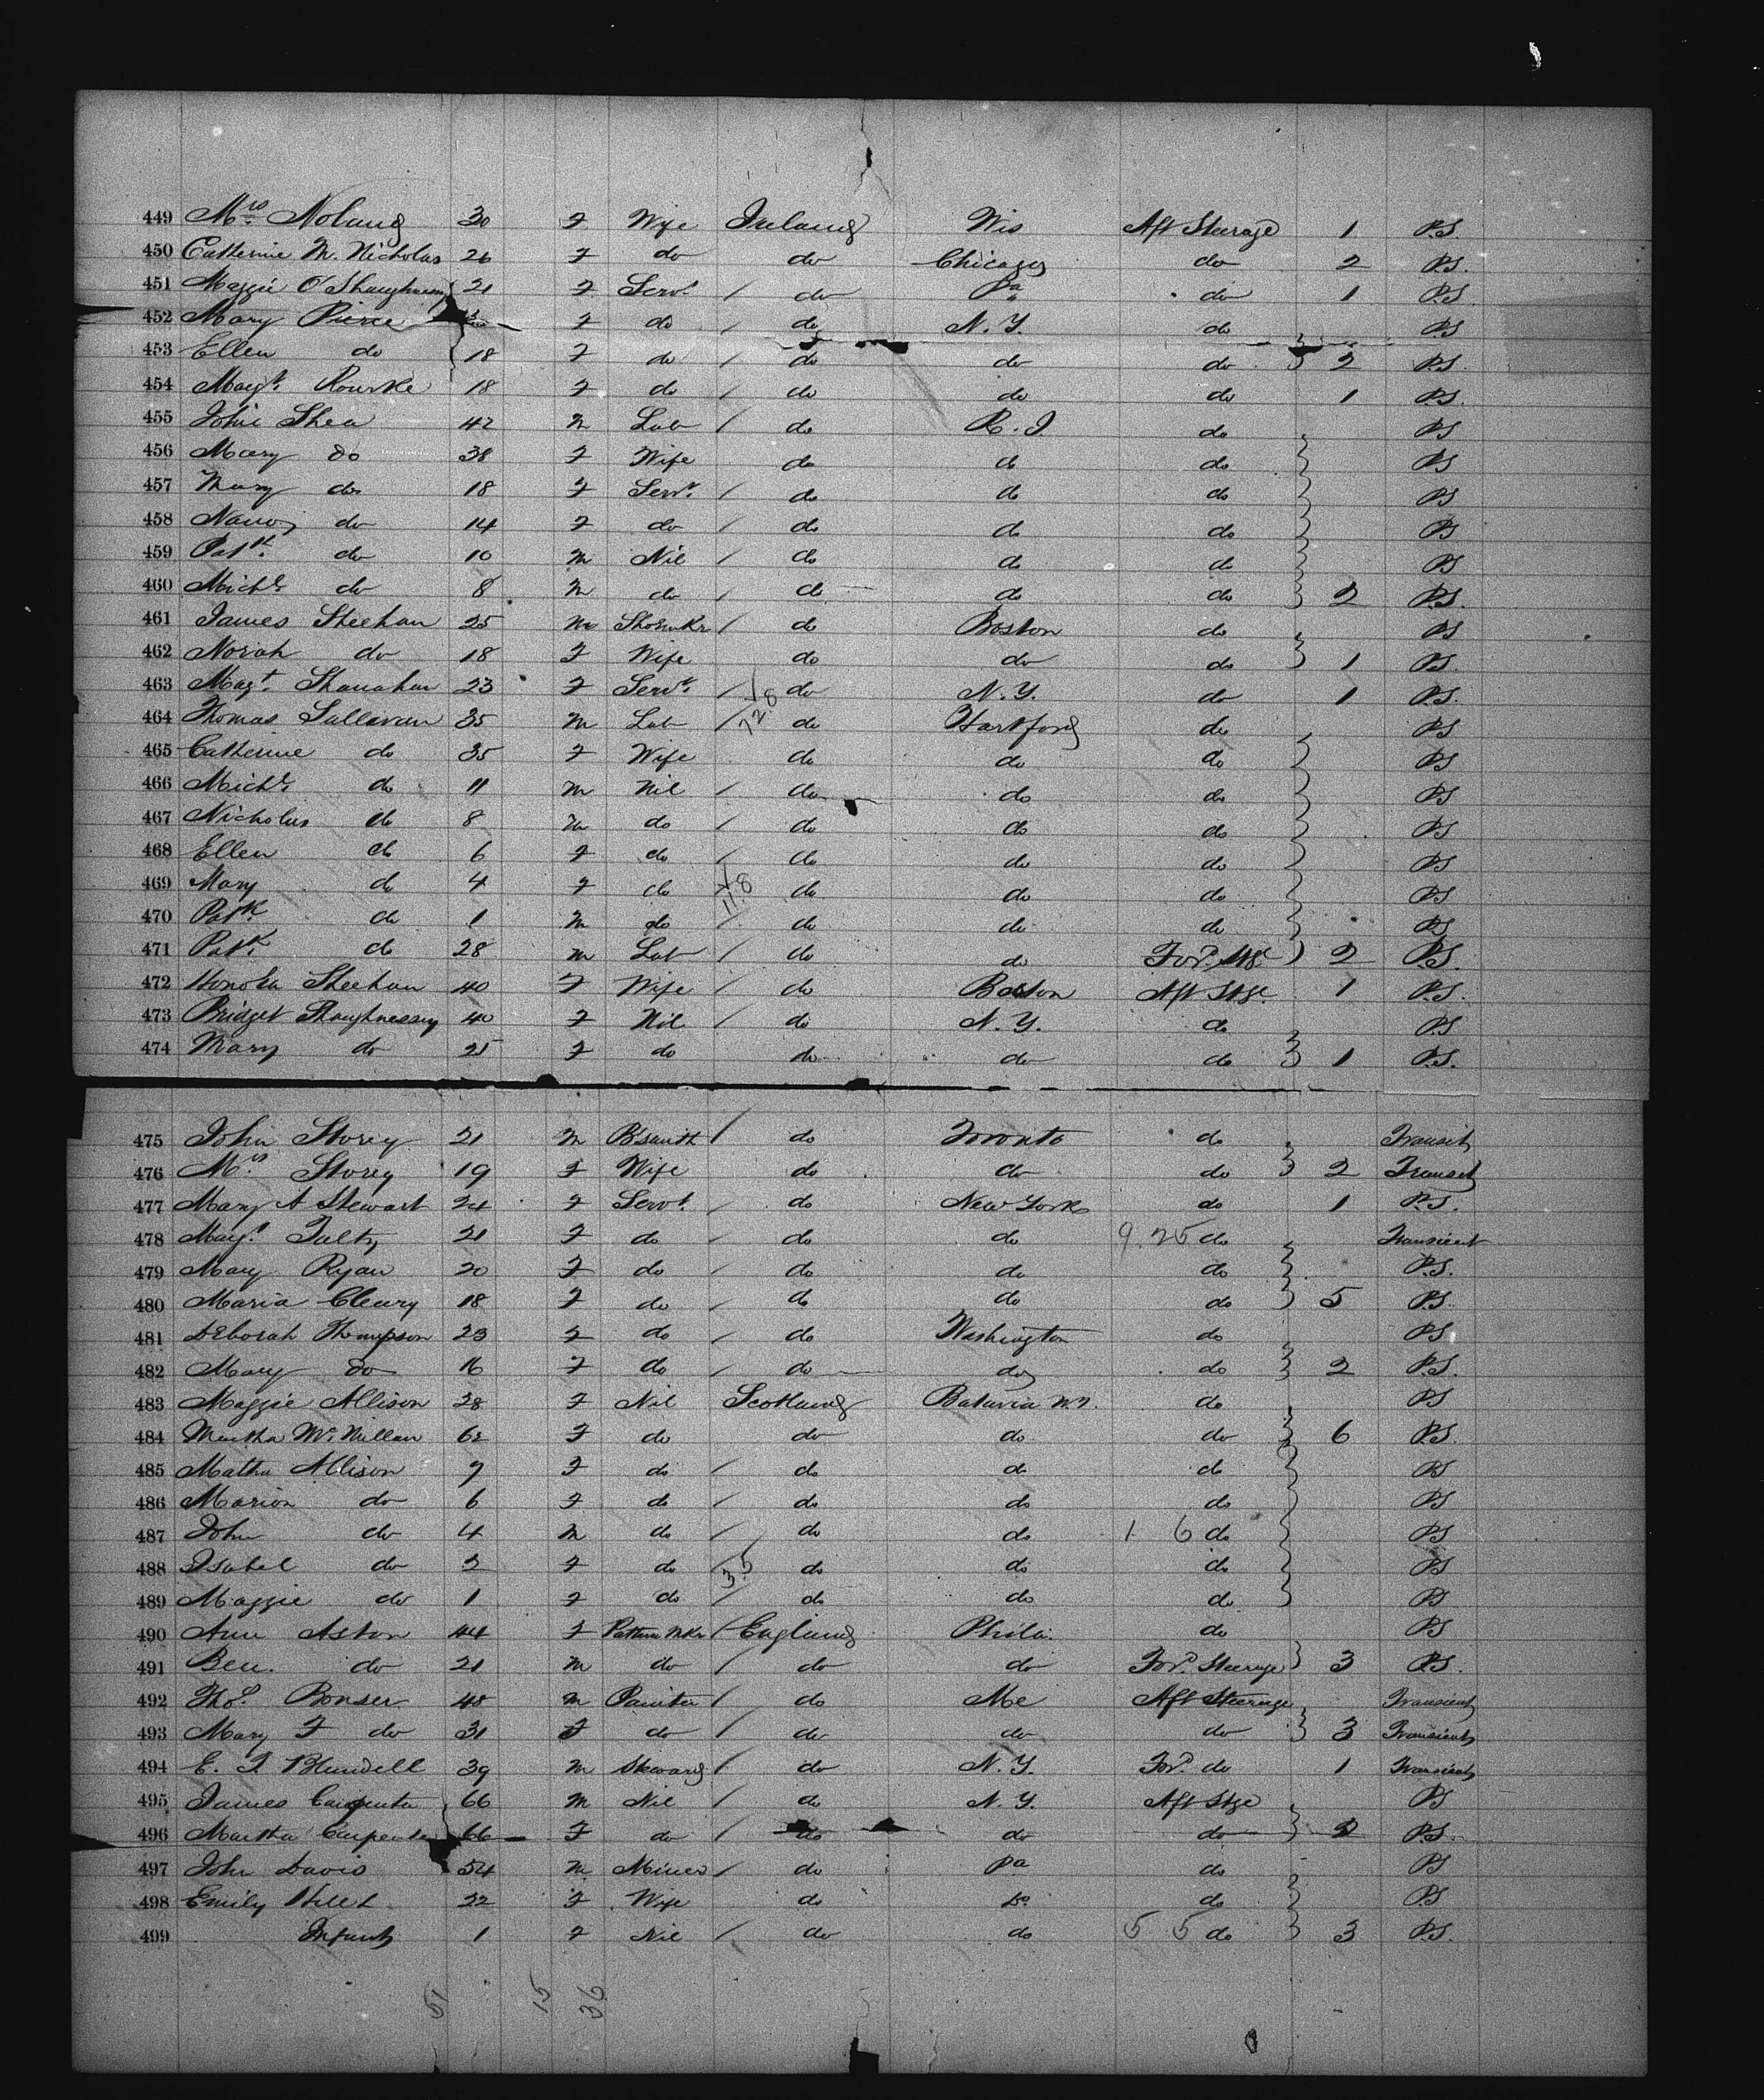 449 Mrs. Noland 30 F Wife Ireland Wis Aft Steerage 1 P.S
450 Catherine McNicholas 26 F do do Chicago do 2 P.S.
451 Maggie O'Shaughnessy 21 F Servt. / do Pa do 1 P.S.
452 Mary Pierce F do / do N.Y. do P.S
453 Ellen do 18 F do / do do do 2 P.S.
454 Magt. Rourke 18 F do / do do do 1 P.S.
455 John Shea 42 M Lab / do R.I. do P.S
456 Mary do 38 F Wife do do do P.S
457 Mary do 18 F Servt. / do do do P.S
458 Nancy do 14 F do / do do do P.S
459 Patk. do 10 M Nil / do do do P.S
460 Michl do 8 M do / do do do 2 P.S.
461 James Sheehan 25 M ShoemKr / do Boston do P.S
462 Norah do 18 F Wife do do do 1 P.S.
463 Magt. Shanahan 23 F Servt. / do N.Y. do 1 P.S.
464 Thomas Sullivan 35 M Lab / 728 do Hartford do P.S
465 Catherine do 35 F Wife do do do P.S
466 Michl. do 11 M Nil / do do do P.S
467 Nicholas do 8 M do / do do do P.S
468 Ellen do 6 F do / do do do P.S
469 Mary do 4 F do 118 do do do P.S
470 Patk. do 1 M do / do do do P.S
471 Patk. do 28 M Lab / do do Ford. Stge 2 P.S.
472 Honora Sheehan 40 F Wife / do Boston Aft Stge. 1 P.S.
473 Bridget Shaughnessy 40 F Nil / do N.Y. do P.S
474 Mary do 25 F do do do do 1 P.S.
475 John Storey 21 M Bsmith / do Toronto do Transit
476 Mrs Storey 19 F Wife do do do 2 Transit
477 Mary A Stewart 24 F Servt. / do New York do 1 P.S.
478 Magt. 21 F do / do do 9.25 do Transient
479 Mary Ryan 20 F do / do do do P.S.
480 Maria Cleary 18 F do / do do do 5 P.S.
481 Deborah Thompson 23 F do / do Washington do P.S
482 Mary do 16 F do / do do do 2 P.S.
483 Maggie Allison 28 F Nil Scotland Batavia N.Y. do P.S
484 Martha McMillan 62 F do do do do 6 P.S.
485 Allison 7 F do / do do do P.S
486 Marion do 6 F do / do do do P.S
487 John do 4 M do / do do 1 6 do P.S
488 Isabel do 2 F do 35 do do do P.S
489 Maggie do 1 F do / do do do P.S
490 Ann Aston 44 F Pattern Mkr / England Phila. do P.S
491 Ben. do 21 M do / do do Ford. Steerage 3 P.S.
492 Thos. Bonser 48 M Painter / do Me Aft Steerage Transient
493 Mary F do 31 F do / do do do 3 Transient
494 E. J. Blundell 39 M Steward / do N.Y. Ford. do 1 Transient
495 James Carpenter 66 M Nil / do N.Y. Aft Stge P.S
496 Martha Carpenter 66 F do / do do do 2 P.S.
497 John Davis 54 M Miner / do Pa do P.S
498 Emily 22 F Wife do Do do P.S
499 Infant 1 F Nil / do do 5 5 do 3 P.S.
51 15 36